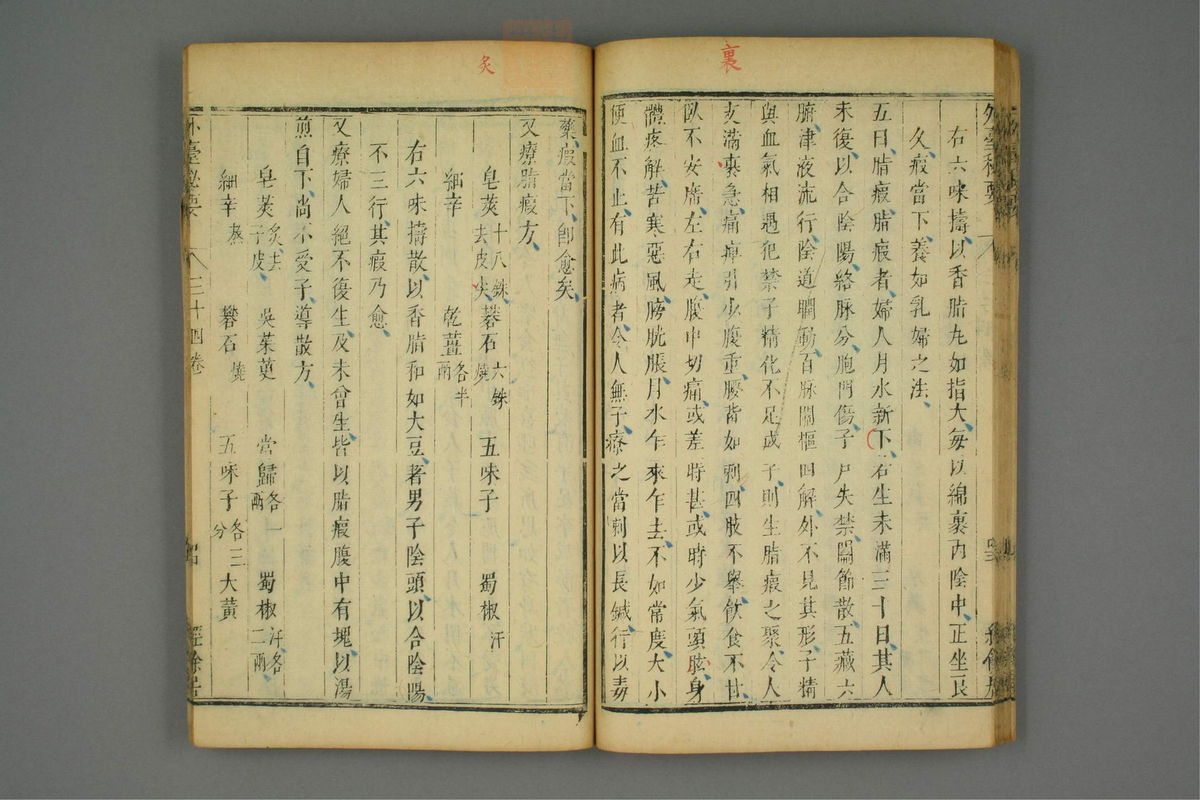 裏
右六味擣以香脂丸如指大每以綿裹內陰中正坐良
久瘕當下養如乳婦之法
五曰脂瘕脂瘕者婦人月水新下若生未滿三十日其人
未復以合陰陽絡脉分胞門傷子戶失禁關節散五藏六
腑津液流行陰道瞤動百脉關樞四解外不見其形子精
與血氣相遇犯禁子精化不足成子則生脂瘕之聚令人
支滿裏急痛痺引少腹重腰背如刺四肢不舉飲食不甘
臥不安席左右走腹中切痛或差時甚或時少氣頭眩身
體疼解苦寒惡風膀胱脹月水乍來乍去不如常度大小
便血不止有此病者令人無子療之當刺以長鍼行以毒
炙
藥瘕當下即愈矣
又療脂瘕方
皂莢十八銖去皮尖 礬石六銖燒 五味子 蜀椒汗
細辛 乾薑各半兩
右六味擣散以香脂和如大豆著男子陰頭以合陰陽
不三行其瘕乃愈
又療婦人絕不復生及未曾生皆以脂瘕腹中有塊以湯
煎自下尚不受子導散方
皂莢炙去子皮 吳茱萸 當歸各一兩 蜀椒汗各二兩
細辛熬 礬石燒 五味子各三分 大黃
外臺秘要 三十四卷